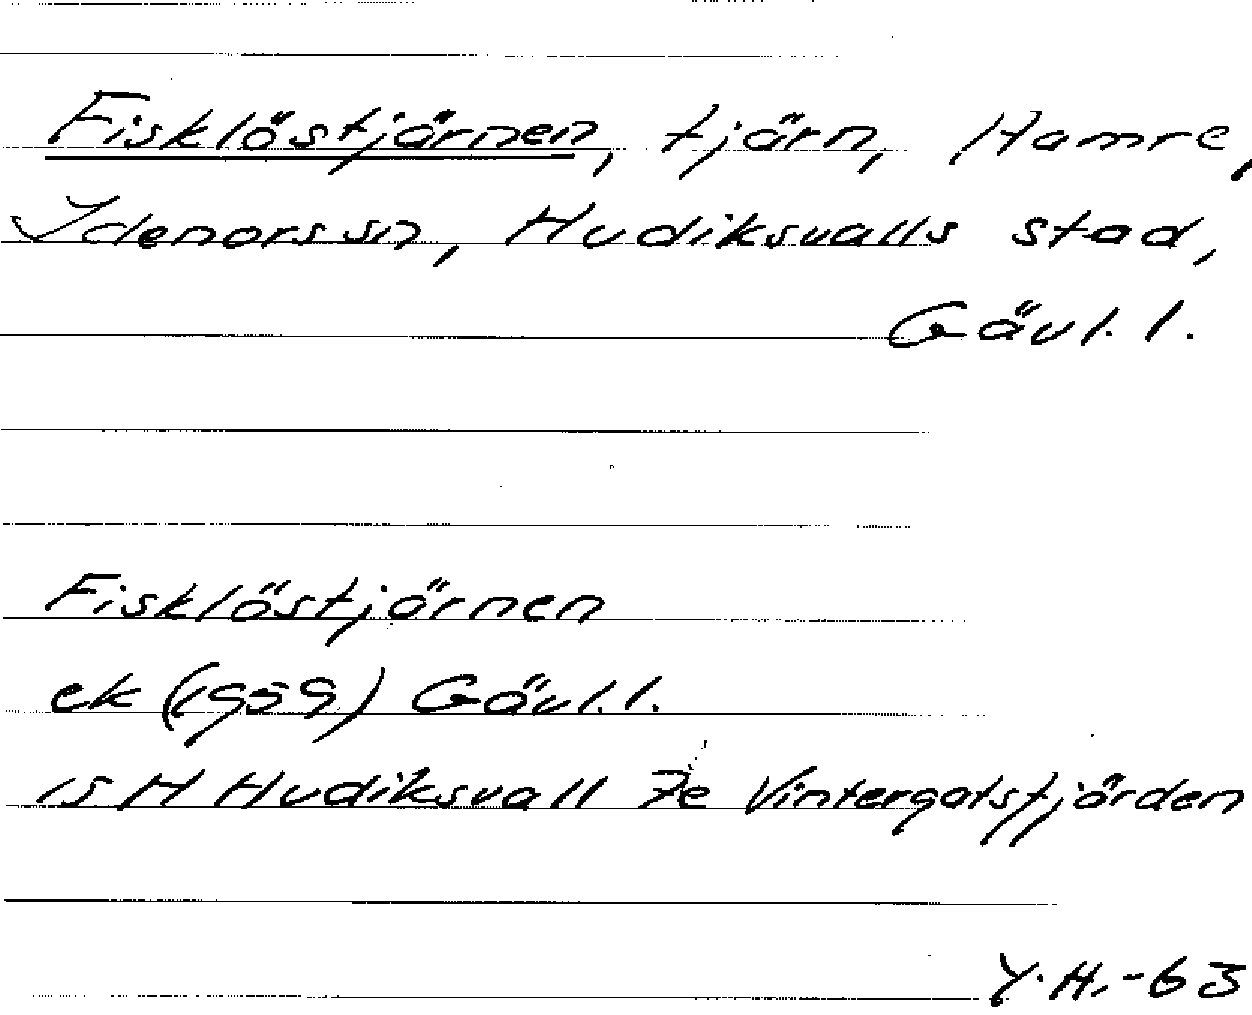 Fisklöstjärnen, tjärn, Hamre,
Idenorssn, Hudiksvalls stad,
Gävl. l.
Fisklöstjärnen
ek (1959) Gävl. l.
15 H Hudiksvall 7e Vintergatsfjärden
Y. H. -63